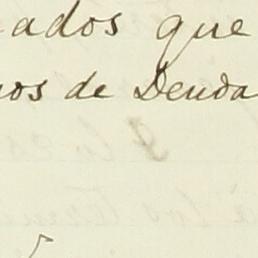 ados que
nos de Deuda